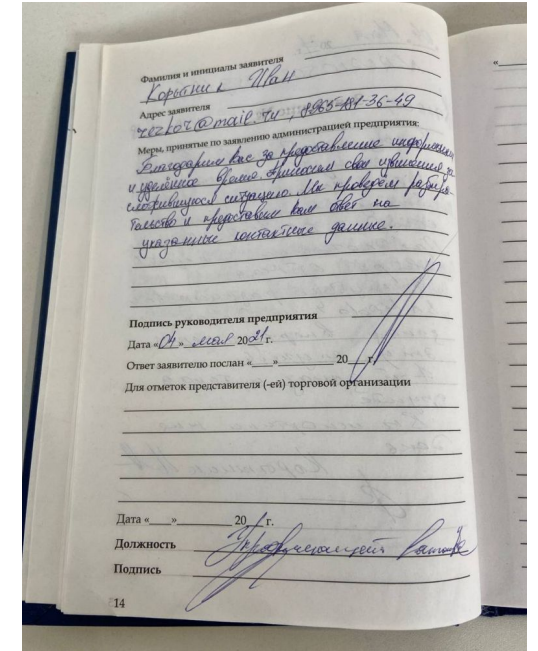 Фамилия и инициалы заявителя
Корытник Иван
Адрес заявителя
@mail.ru, 8965-181-36-49
Меры, принятые по заявлению администрацией предприятия:
Благодарим вас за предоставление информации
и уделённое время. Приносим свои извинения за
сложившуюся ситуацию. Мы проведём разбира-
тельство и предоставим вам ответ на
указанные контактные данные.
Подпись руководителя предприятия
Дата «04» мая 2021 г.
Ответ заявителю послан «___»__________ 20__ г.
Для отметок представителя (-ей) торговой организации
Дата «___»__________ 20__ г.
Должность Управляющий
Подпись
14